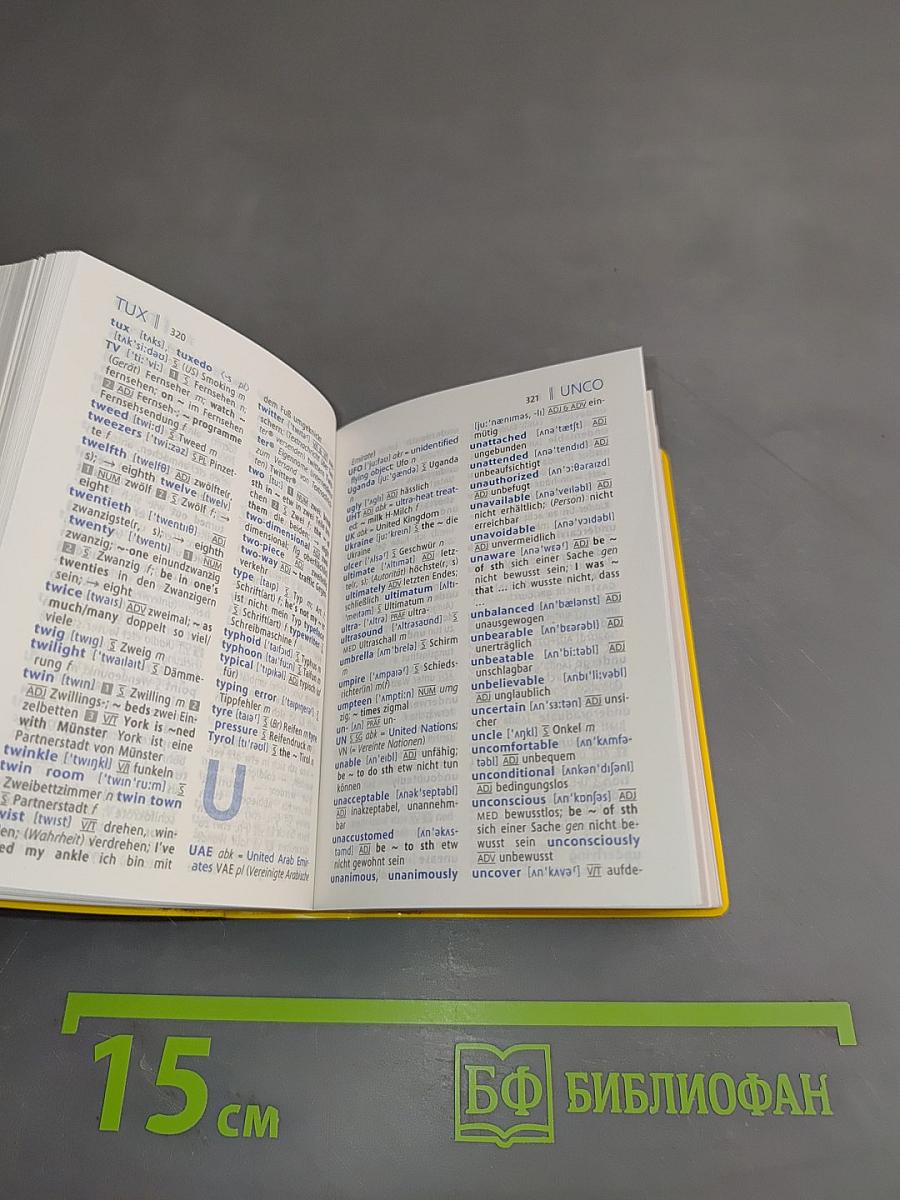 TUX 320
tux [tʌks], tuxedo (-s pl)
[tʌk'si:dəʊ] S (US) Smoking m
TV ['ti:'vi:] 1 S Fernsehen n;
(Gerät) Fernseher m; watch ~
fernsehen; on ~ im Fernsehen
2 ADJ Fernseh-; ~ programme
Fernsehsendung f
tweed [twi:d] S Tweed m
tweezers ['twi:zəz] S PL Pinzet-
te f
twelfth [twelfθ] ADJ zwölfte(r,
s); → eighth twelve [twelv]
1 NUM zwölf 2 S Zwölf f; →
eight
twentieth ['twentɪɪθ] ADJ
zwanzigste(r, s); → eighth
twenty ['twentɪ] 1 NUM
zwanzig; ~-one einundzwanzig
2 S Zwanzig f; be in one's
twenties in den Zwanzigern
sein; → eight
twice [twaɪs] ADV zweimal; ~ as
much/many doppelt so viel/
viele
twig [twɪg] S Zweig m
twilight ['twaɪlaɪt] S Dämme-
rung f
twin [twɪn] 1 S Zwilling m 2
ADJ Zwillings-; ~ beds zwei Ein-
zelbetten 3 V/T York is ~ned
with Münster York ist eine
Partnerstadt von Münster
twinkle ['twɪŋkl] V/I funkeln
twin room ['twɪn'ru:m] S
Zweibettzimmer n twin town
S Partnerstadt f
twist [twɪst] V/T drehen, win-
den; (Wahrheit) verdrehen; I've
my ankle ich bin mit
dem Fuß umgeknickt
twitter ['twɪtə]
two [tu:] 1 NUM zwei
two-dimensional ADJ zwei-
dimensional; fig oberflächlich
two-piece ADJ zweiteilig
two-way ADJ ~ traffic Gegen-
verkehr
type [taɪp] S Typ m; Art f;
Schrift(art) f; he's not my ~ er
ist nicht mein Typ typeface
S Schrift(art) f typewriter S
Schreibmaschine f
typhoid ['taɪfɔɪd] S Typhus m
typhoon [taɪ'fu:n] S Taifun m
typical ['tɪpɪkəl] ADJ typisch (of
für)
typing error ['taɪpɪŋerə] S
Tippfehler m
tyre [taɪəʳ] S (Br) Reifen m tyre
pressure S Reifendruck m
Tyrol [tɪ'rəʊl] S the ~ Tirol n
U
UAE abk = United Arab Emir-
ates VAE pl (Vereinigte Arabische
321 UNCO
Emirate)
UFO ['ju:fəʊ] akr = unidentified
flying object; Ufo n
Uganda [ju:'gændə] S Uganda
n
ugly ['ʌglɪ] ADJ hässlich
UHT ADJ abk = ultra-heat treat-
ed: ~ milk H-Milch f
UK abk = United Kingdom
Ukraine [ju:'kreɪn] S the ~ die
Ukraine
ulcer ['ʌlsəʳ] S Geschwür n
ultimate ['ʌltɪmət] ADJ letz-
te(r, s); (Autorität) höchste(r, s)
ultimately ADV letzten Endes;
schließlich ultimatum [ʌltɪ-
'meɪtəm] S Ultimatum n
ultra- ['ʌltrə] PRÄF ultra-
ultrasound ['ʌltrəsaʊnd] S
MED Ultraschall m
umbrella [ʌm'brelə] S Schirm
m
umpire ['ʌmpaɪəʳ] S Schieds-
richter(in) m(f)
umpteen ['ʌmpti:n] NUM umg
zig; ~ times zigmal
un- [ʌn] PRÄF un-
UN S SG abk = United Nations;
VN (= Vereinte Nationen)
unable [ʌn'eɪbl] ADJ unfähig;
be ~ to do sth etw nicht tun
können
unacceptable [ʌnək'septəbl]
ADJ inakzeptabel, unannehm-
bar
unaccustomed [ʌn'əkʌs-
təmd] ADJ be ~ to sth etw
nicht gewohnt sein
unanimous, unanimously
[ju:'nænɪməs, -lɪ] ADJ & ADV ein-
mütig
unattached [ʌnə'tætʃt] ADJ
ungebunden
unattended [ʌnə'tendɪd] ADJ
unbeaufsichtigt
unauthorized [ʌn'ɔ:θəraɪzd]
ADJ unbefugt
unavailable [ʌnə'veɪləbl] ADJ
nicht erhältlich; (Person) nicht
erreichbar
unavoidable [ʌnə'vɔɪdəbl]
ADJ unvermeidlich
unaware [ʌnə'wɛəʳ] ADJ be ~
of sth sich einer Sache gen
nicht bewusst sein; I was ~
that ... ich wusste nicht, dass
...
unbalanced [ʌn'bælənst] ADJ
unausgewogen
unbearable [ʌn'bɛərəbl] ADJ
unerträglich
unbeatable [ʌn'bi:təbl] ADJ
unschlagbar
unbelievable [ʌnbɪ'li:vəbl]
ADJ unglaublich
uncertain [ʌn'sɜ:tən] ADJ unsi-
cher
uncle ['ʌŋkl] S Onkel m
uncomfortable [ʌn'kʌmfə-
təbl] ADJ unbequem
unconditional [ʌnkən'dɪʃənl]
ADJ bedingungslos
unconscious [ʌn'kɒnʃəs] ADJ
MED bewusstlos; be ~ of sth
sich einer Sache gen nicht be-
wusst sein unconsciously
ADV unbewusst
uncover [ʌn'kʌvəʳ] V/T aufde-
15 см
БФ БИБЛИОФАН